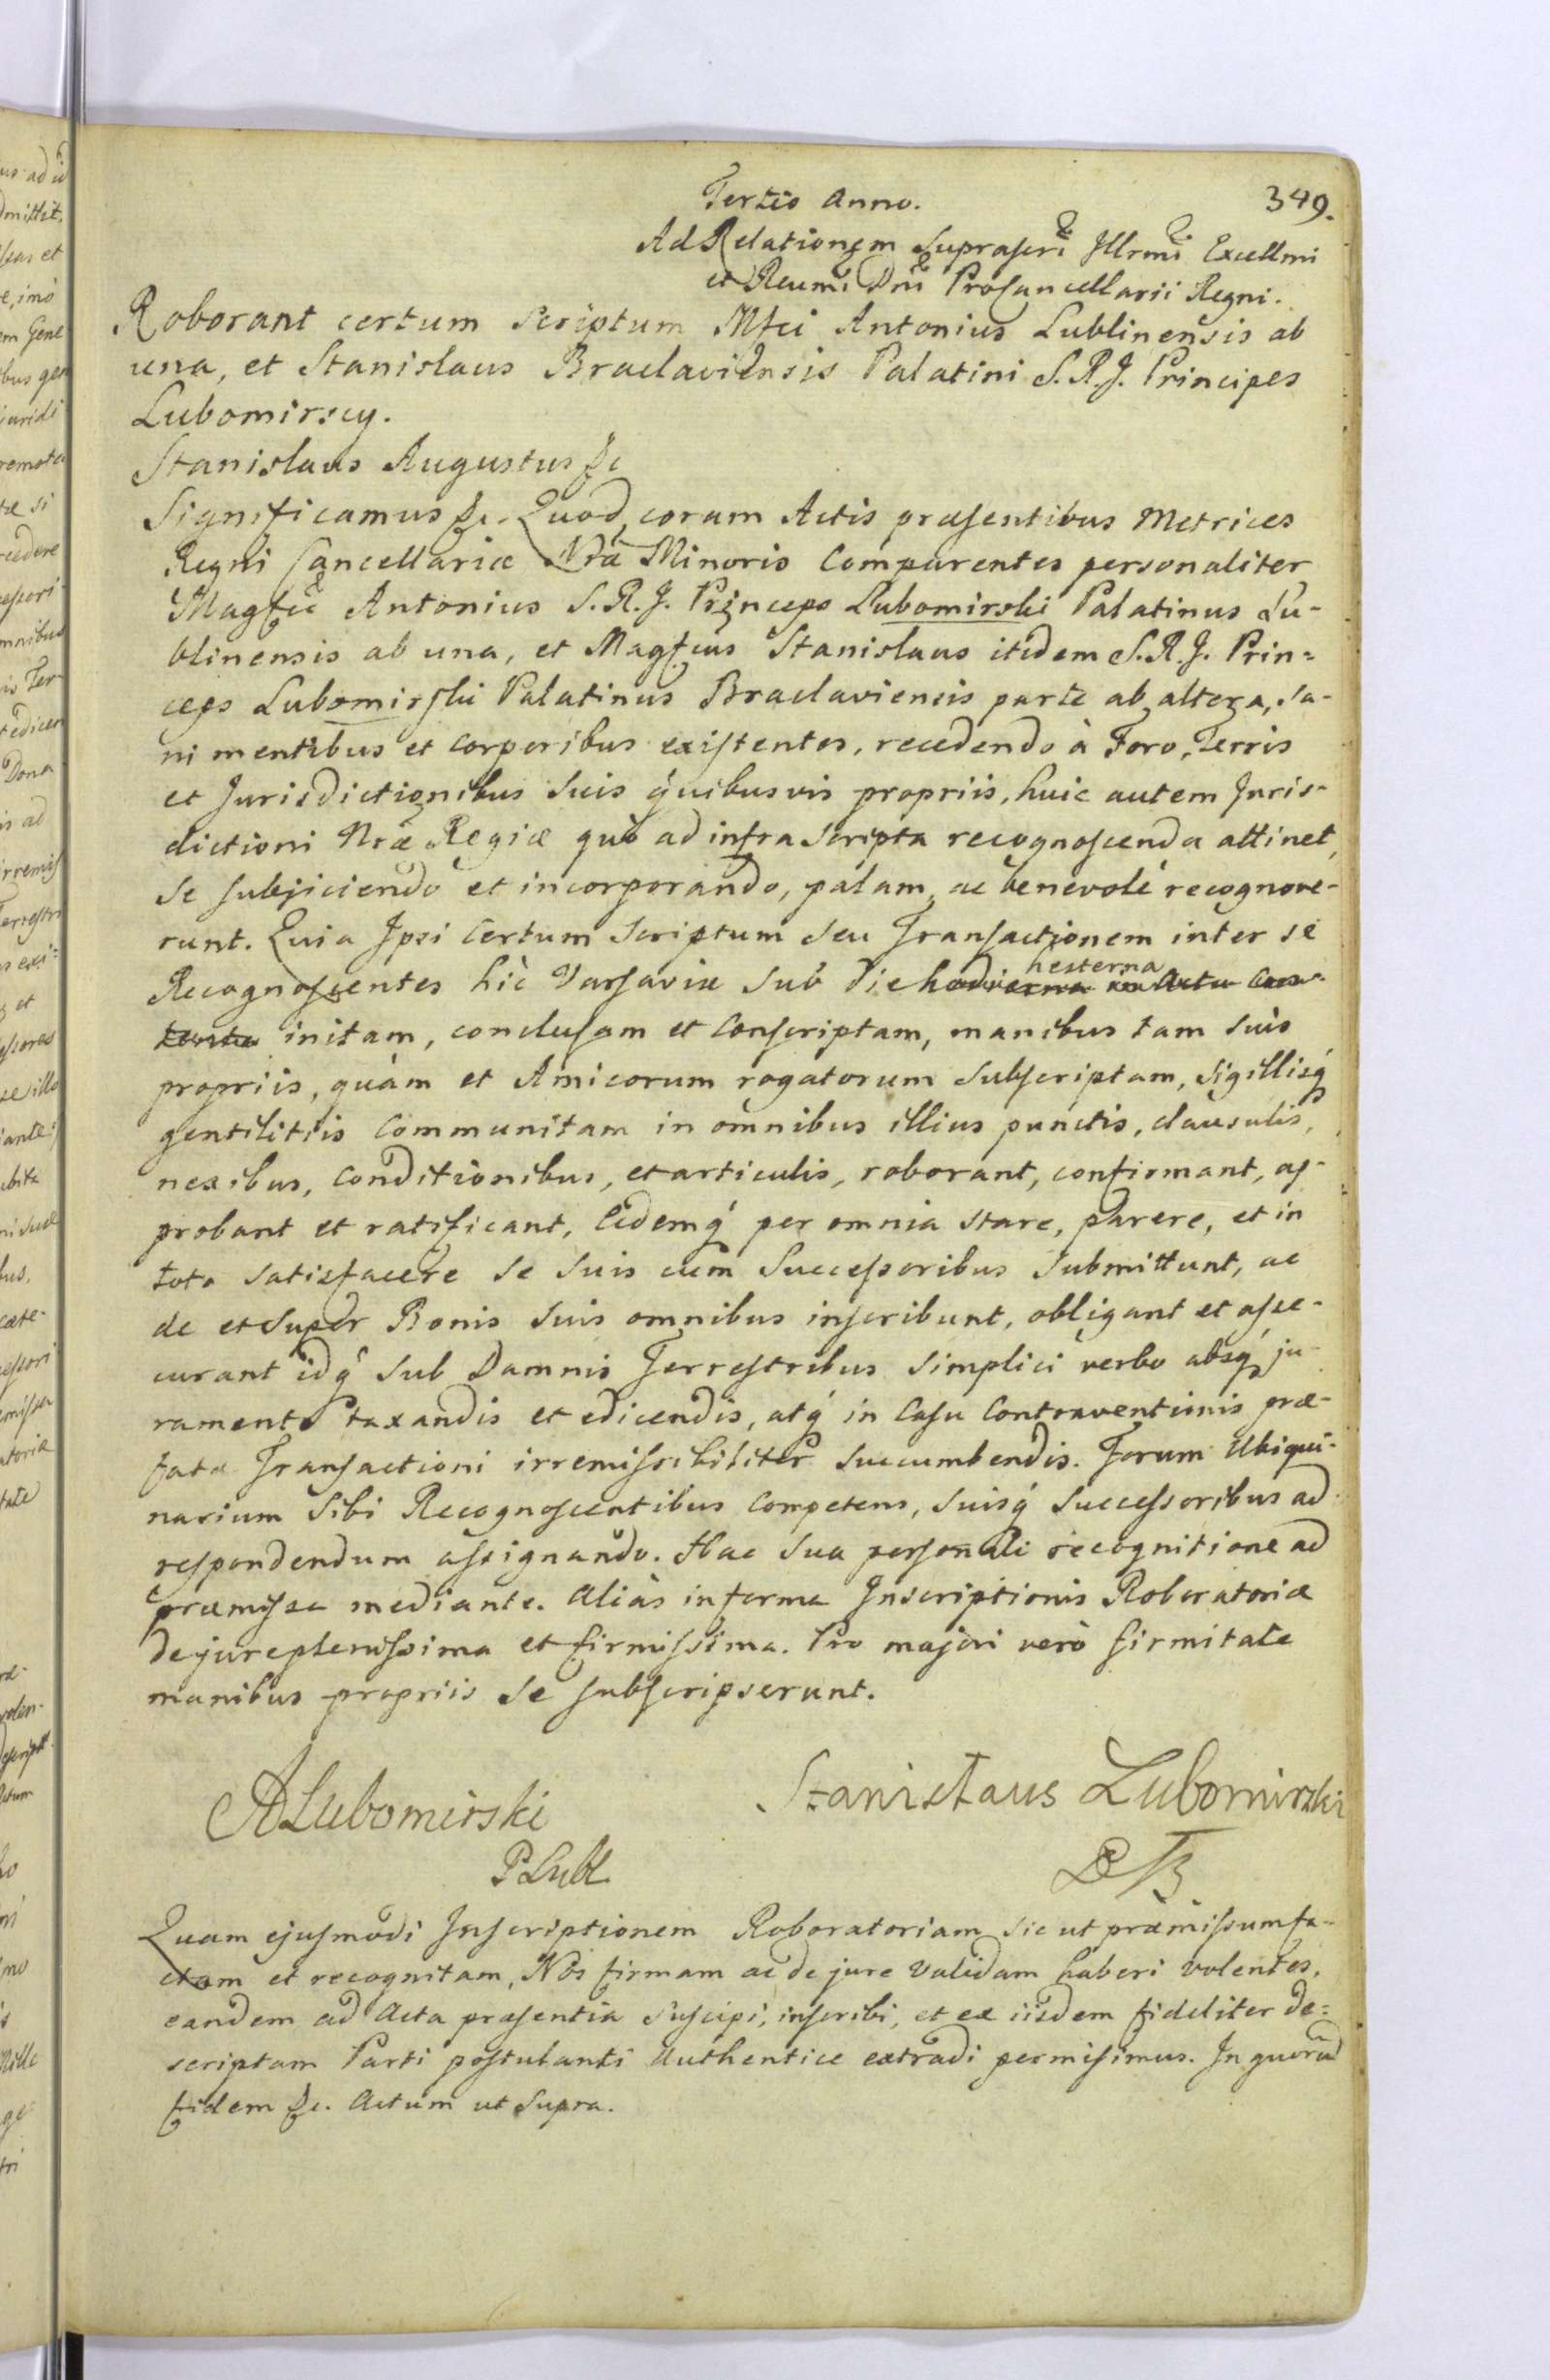 349.
Tertio Anno.
Ad Relationem Suprascri Illrmi Excellmi
et Reumi Dni Procancellarii Regni.
Roborant certum Scriptum Mfci Antonius Lublinensis ab
una, et Stanislaus Braclaviensis Palatini S. R. J. Principes
Lubomirscy.
Stanislaus Augustus &c
Significamus &c. Quod coram Actis præsentibus Metrices
Regni Cancellariæ Nræ Minoris Comparentes personaliter
Magfci Antonius S. R. J. Princeps Lubomirski Palatinus Lu-
blinensis ab una, et Magfcus Stanislaus itidem S. R. J. Prin=
ceps Lubomirski Palatinus Braclaviensis parte ab altera, sa-
ni mentibus et corporibus existentes, recedendo à Foro, Terris
et Jurisdictionibus Suis quibusvis propriis, huic autem Juris-
dictioni Nræ Regiæ quò ad infra Scripta recognoscenda attinet,
Se subjiciendo et incorporando, palam, ac benevolè recognove-
runt. Quia Ipsi Certum Scriptum seu Transactionem inter se
hesterna
Recognoscentes hic Varsaviæ Sub Die hodierna in Actu Con-
tenta initam, conclusam et Conscriptam, manibus tam Suis
propriis, quàm et Amicorum rogatorum Subscriptam, Sigillisq́
gentilitiis Communitam in omnibus illius punctis, clausulis,
nexibus, Conditionibus, et articulis, roborant, confirmant, ap-
probant et ratificant, Eidemq́ per omnia stare, parere, et in
toto satisfacere Se Suis cum Successoribus Submittunt, ac
de et Super Bonis Suis omnibus inscribunt, obligant et asse-
curant idq́ Sub Damnis Terrestribus Simplici verbo absq́ ju-
ramento taxandis et edicendis, atq́ in Casu Contraventionis præ-
fatæ Transactioni irremissibiliter Succumbendis. Forum Ubiqui-
narium Sibi Recognoscentibus Competens, Suisq́ Successoribus ad
respondendum assignando. Hac Sua personali recognitione ad
præmissa mediante. Aliàs in forma Inscriptionis Roboratoriæ
de jure plenissima et firmissima. Pro majori verò firmitate
manibus propriis Se subscripserunt.
ALubomirski
Stanisłaus Lubomirski
P Lubl
Quam ejusmodi Inscriptionem Roboratoriam Sic ut præmissum fa-
ctam et recognitam, Nos firmam ac de jure validam haberi volentes,
eandem ad Acta præsentia Suscipi, inscribi, et ex iisdem fideliter de=
scriptam Parti postulanti Authentice extradi permisimus. In quorū
fidem &c. Actum ut Supra.